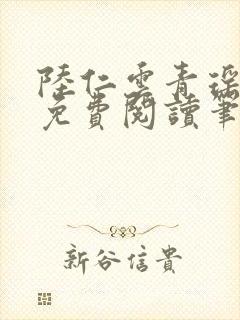 陸仁雲青瑤
免費閱讀筆
新谷信貴